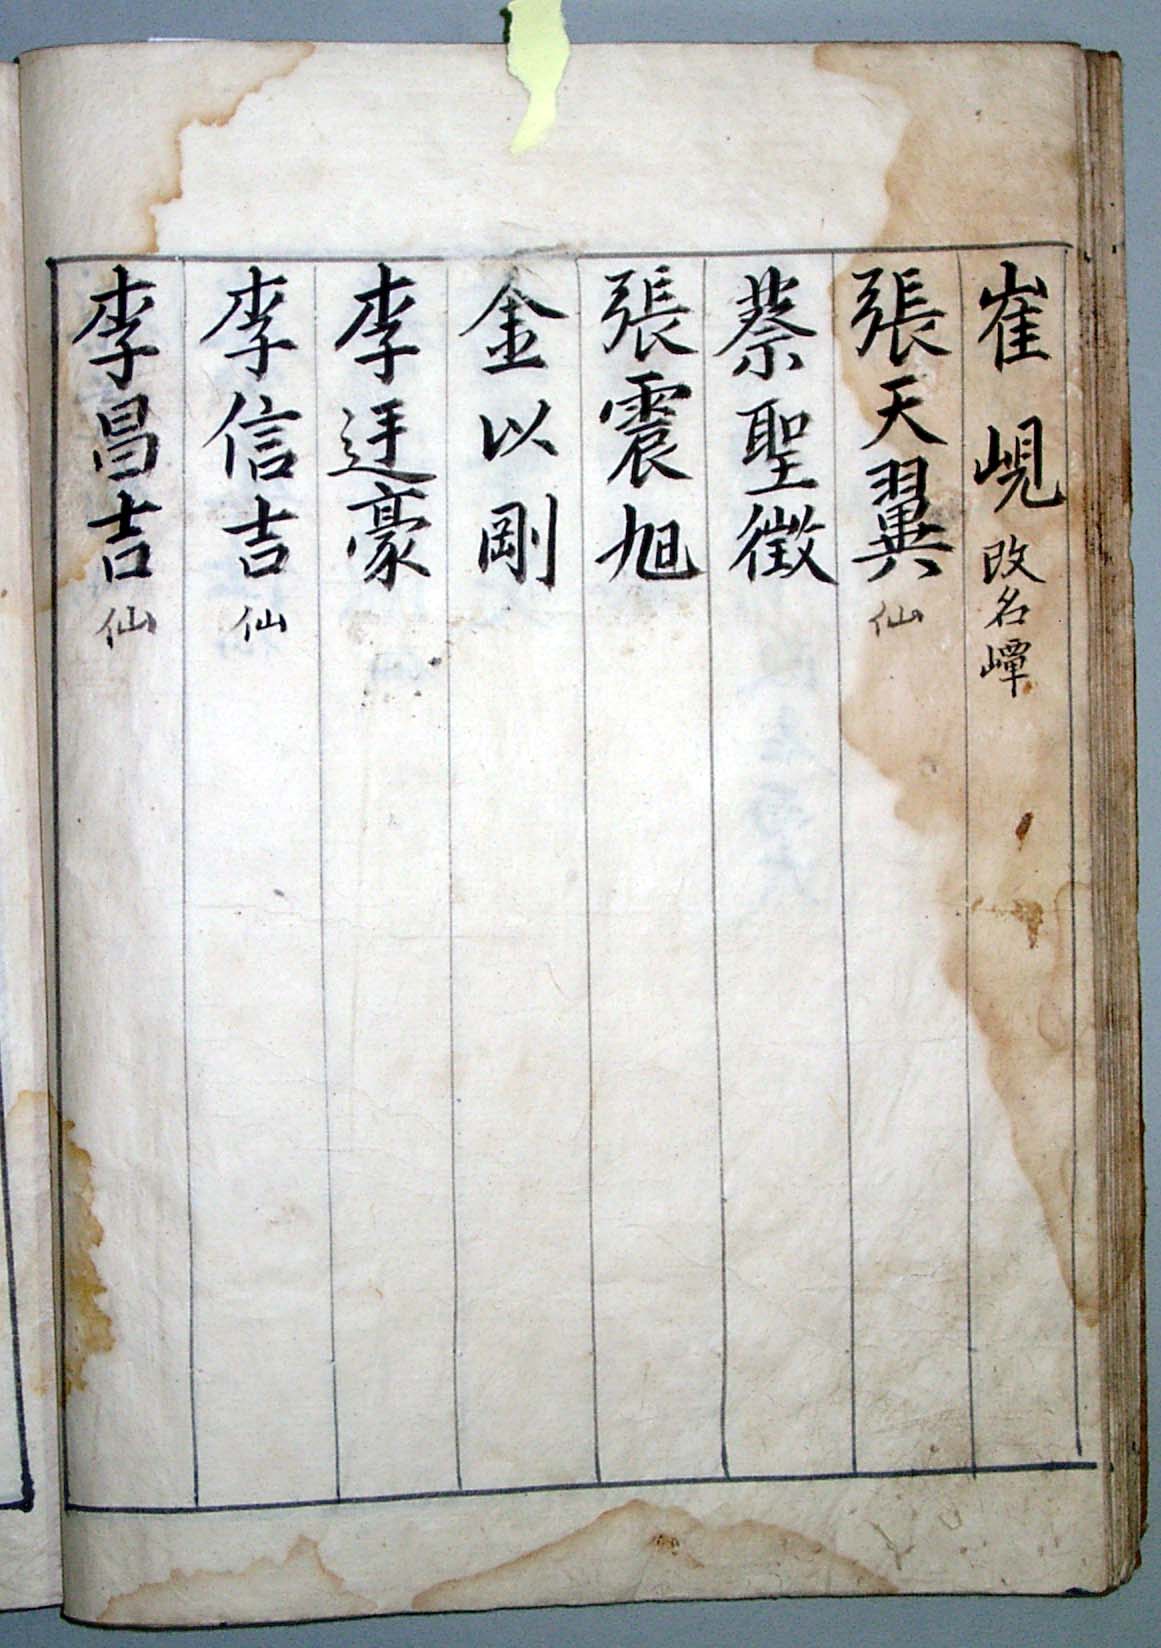 崔峴 改名嶂
張天翼 仙
蔡聖徵
張震旭
金以剛
李廷豪
李信吉 仙
李昌吉 仙